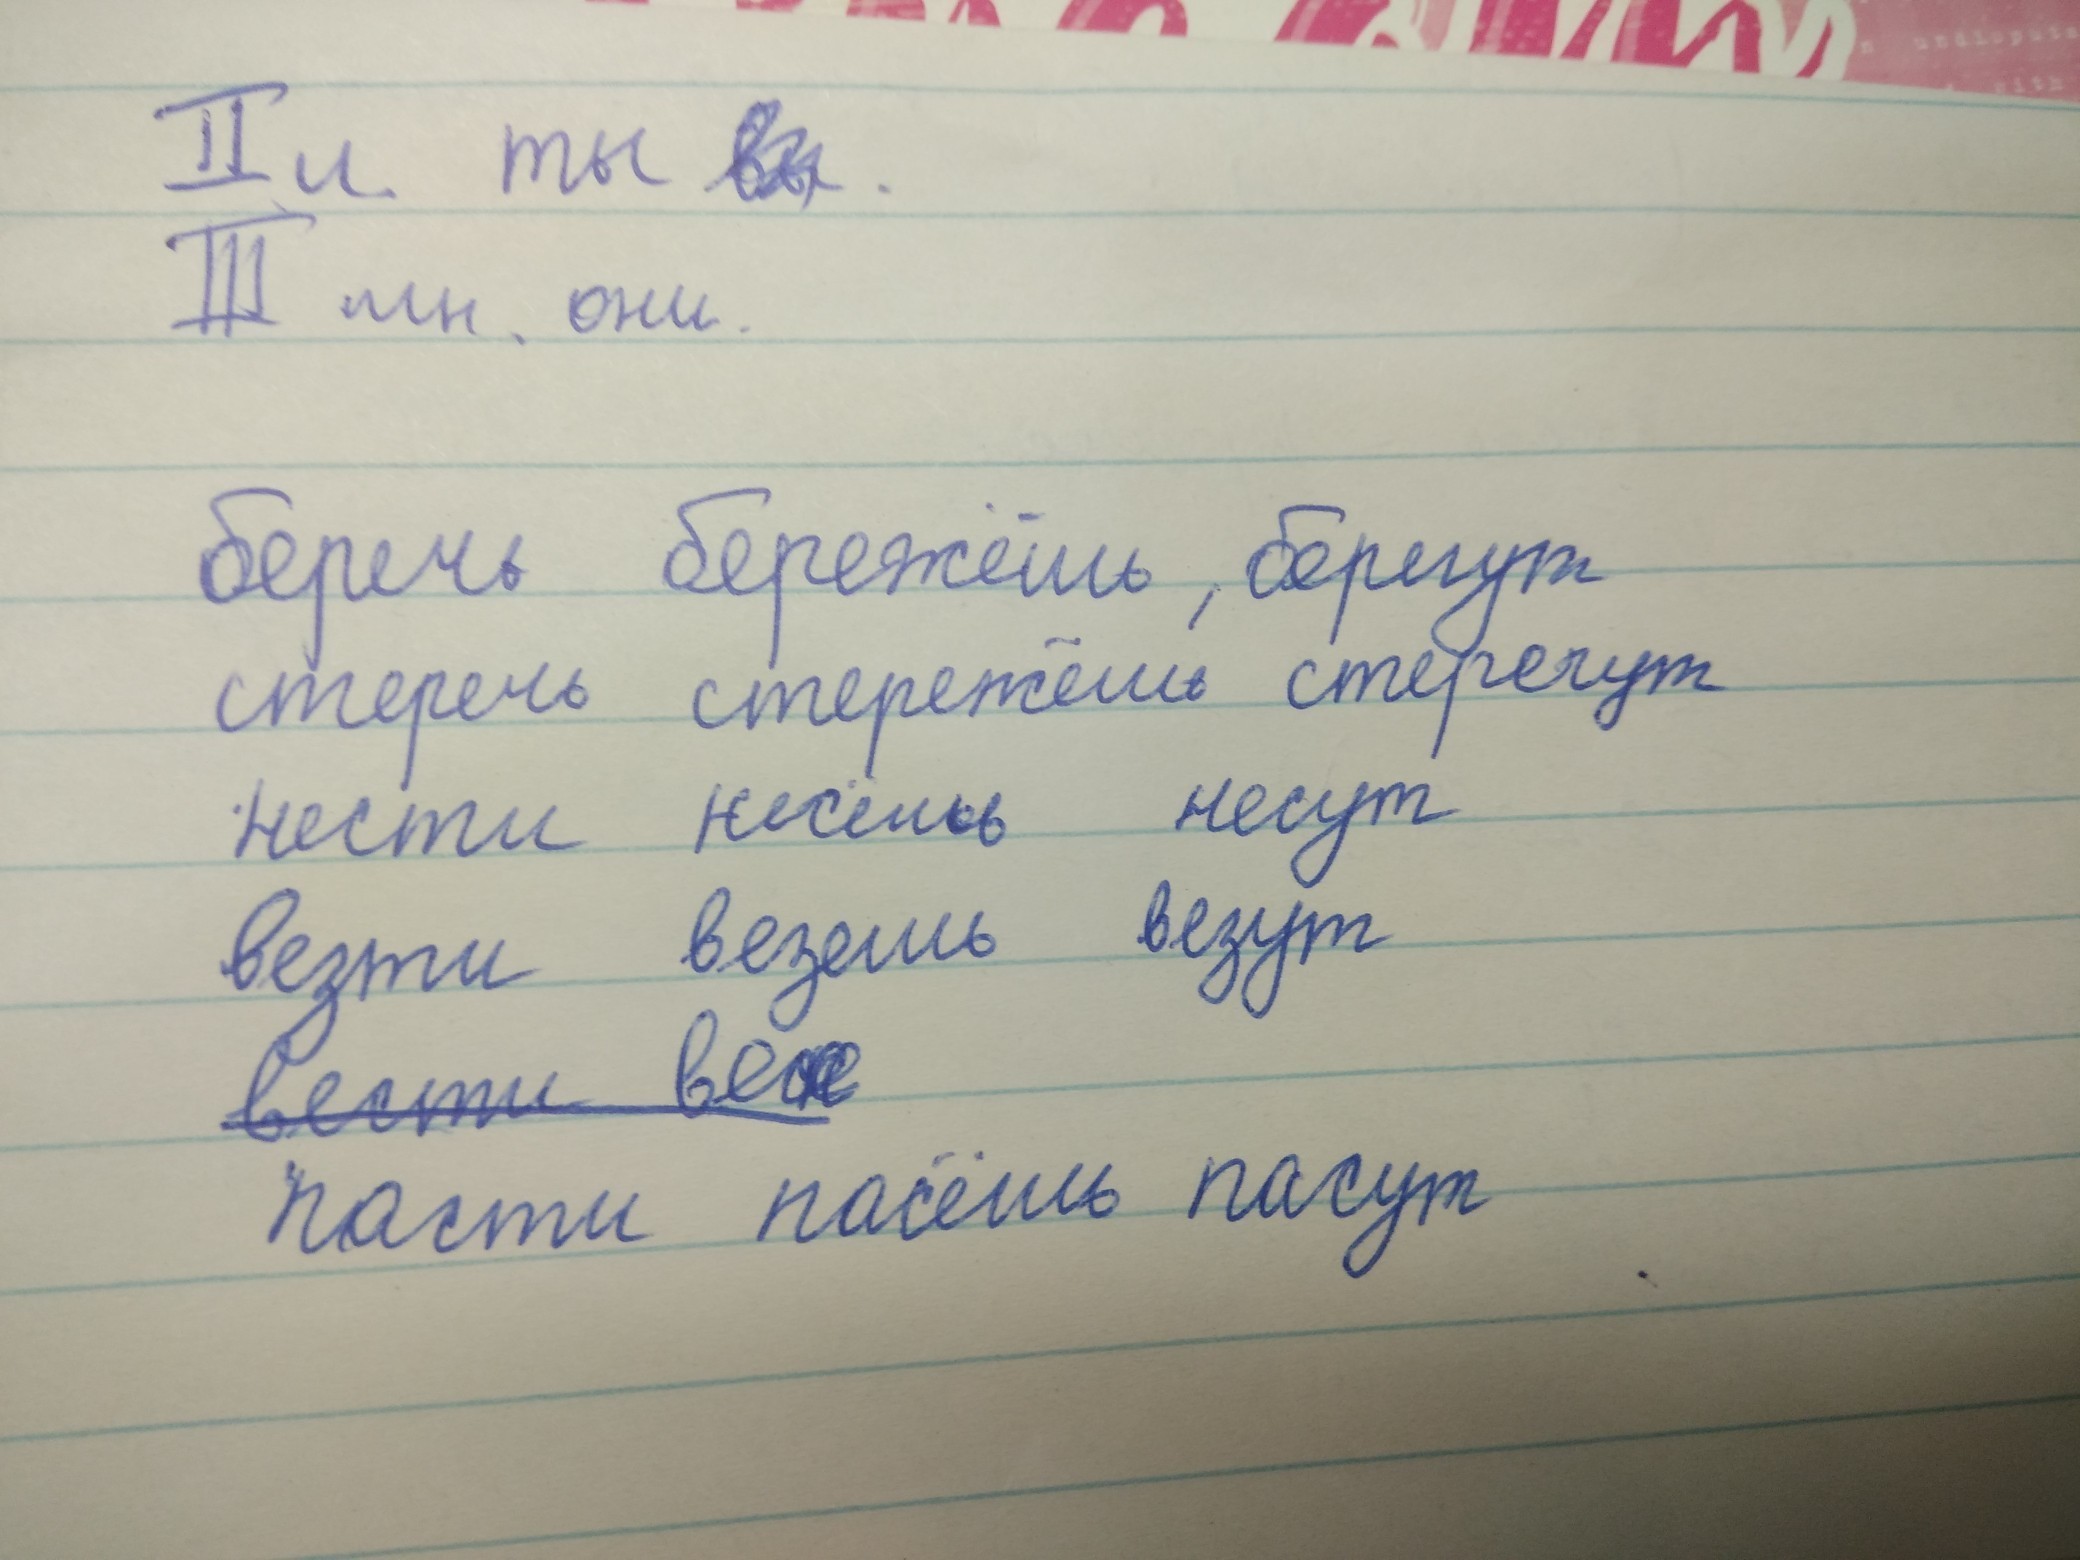 II л. ты
III мн. они.
беречь бережёшь, берегут
стеречь стережёшь стерегут
нести несёшь несут
везти везешь везут
вести
пасти пасёшь пасут